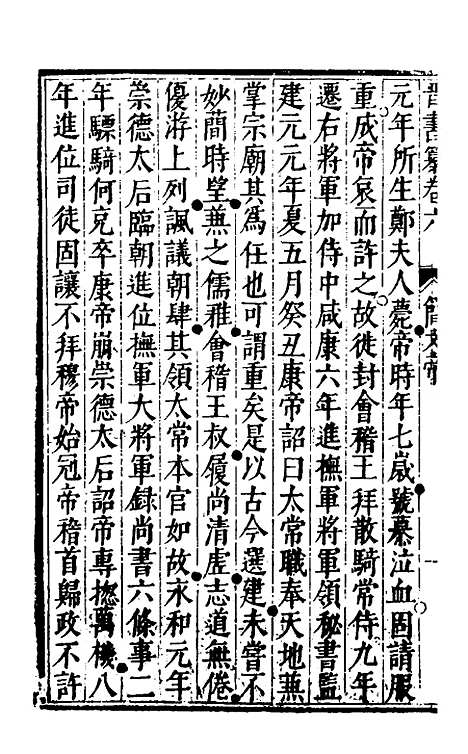 晋書纂卷六　簡文帝　一
元年所生鄭夫人薨帝時年七歲號慕泣血固請服
重成帝哀而許之故徙封會稽王拜散騎常侍九年
遷右將軍加侍中咸康六年進撫軍將軍領秘書監
建元元年夏五月癸丑康帝詔曰太常職奉天地兼
掌宗廟其爲任也可謂重矣是以古今選建未嘗不
妙簡時望兼之儒雅會稽王叔履尚清虛志道無倦
優游上列諷議朝肆其領太常本官如故永和元年
崇德太后臨朝進位撫軍大將軍録尚書六條事二
年驃騎何充卒康帝崩崇德太后詔帝專揔萬機八
年進位司徒固讓不拜穆帝始冠帝稽首歸政不許